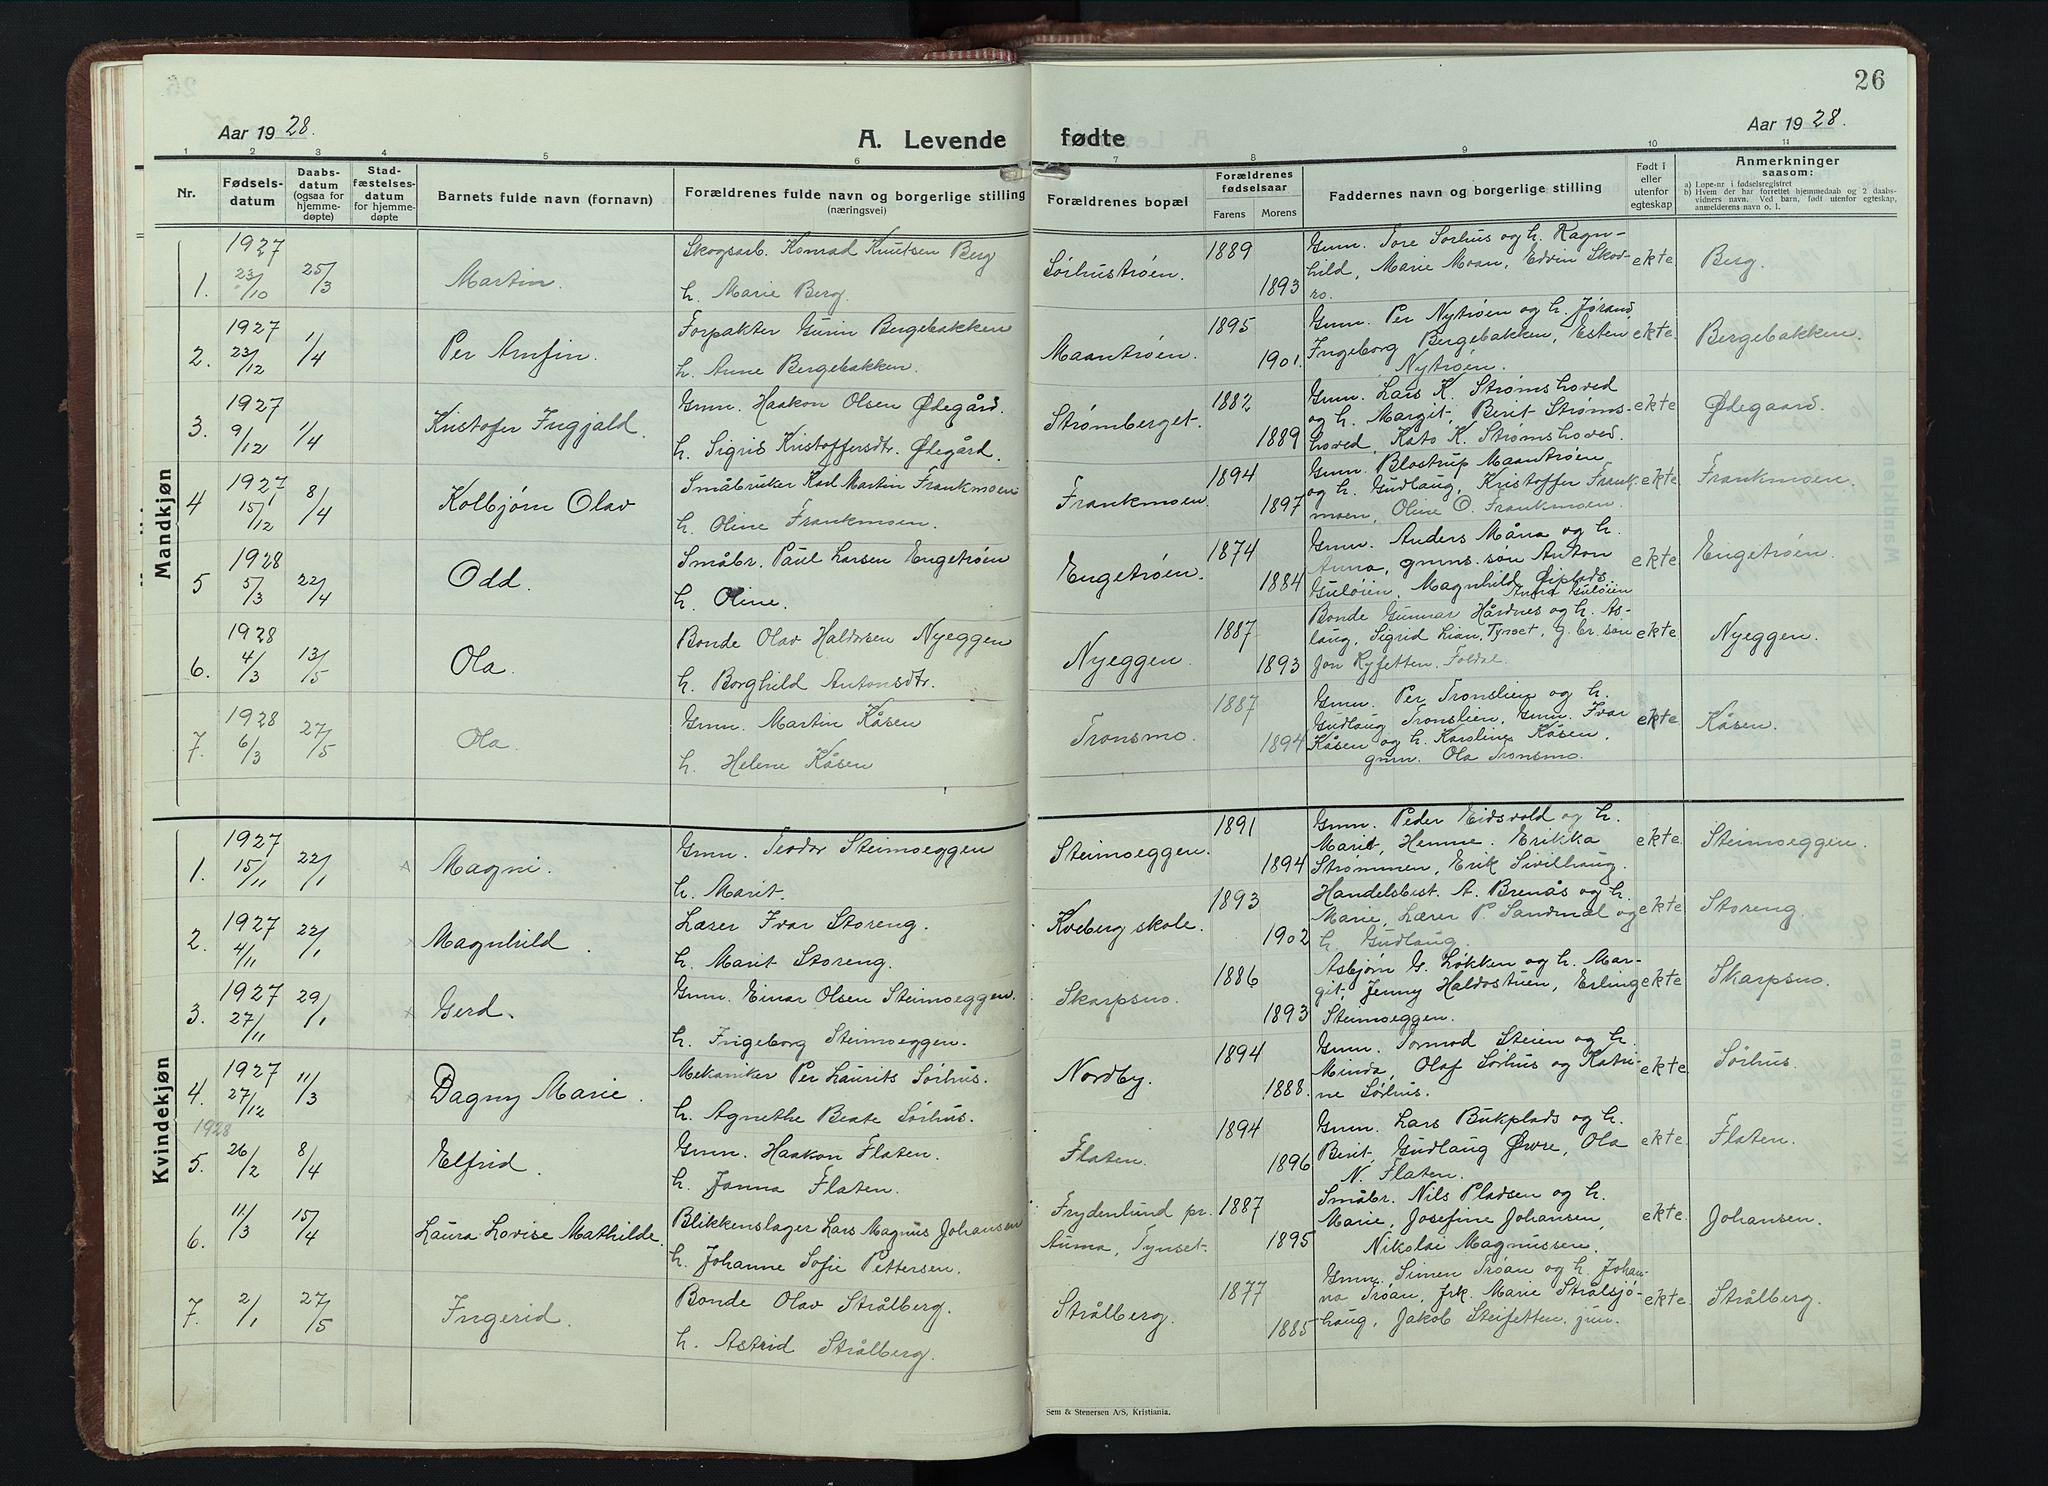 26
Aar 1928.
A. Levende fødte
Aar 1928.
1 2 3 4 5 6 7 8 9 10 11
Nr.
Fødsels-
datum
Daabs-
datum
(ogsaa for
hjemme-
døpte)
Stad-
fæstelses-
datum
for hjemme-
døpte
Barnets fulde navn (fornavn)
Forældrenes fulde navn og borgerlige stilling
(næringsvei)
Forældrenes bopæl
Forældrenes
fødselsaar
Farens Morens
Faddernes navn og borgerlige stilling
Født i
eller
utenfor
egteskap
Anmerkninger
saasom:
a) Løpe-nr i fødselsregistret
b) Hvem der har forrettet hjemmedaab og 2 daabs-
vidners navn. Ved barn, født utenfor egteskap,
anmelderens navn o. l.
Mandkjøn
1. 1927 23/10 25/3 Martin.
Skogsarb. Konrad Knutsen Berg
h. Marie Berg.
Sørhustrøen. 1889 1893
Gmn. Tore Sørhus og h. Ragn-
hild, Marie Moan, Edvin Skod-
ro.
ekte Berg.
2. 1927 23/12 1/4 Per Arnfin.
Forpakter Gunn Bergebakken
h. Anne Bergebakken.
Maantrøen. 1895 1901.
Gmn. Per Nytrøen og h. Jørand
Ingeborg Bergebakken, Esten
Nytrøen.
ekte. Bergebakken.
3. 1927 9/12 1/4 Kristofer Ingjald.
Gmn. Haakon Olsen Ødegård.
h. Sigris Kristoffersdtr. Ødegård.
Strømberget. 1882 1889
Gmn. Lars K. Strømshoved
og h. Margit, Berit Strøms-
hoved, Kato K. Strømshoved.
ekte Ødegaard.
4 1927 15/12 8/4 Kolbjørn Olav
Småbruker Karl Martin Frankmoen
h. Oline Frankmoen.
Frankmoen. 1894 1897
Gmn. Blostrup Maantrøen
og h. Gudlaug, Kristoffer Frank-
moen, Oline O. Frankmoen.
ekte. Frankmoen.
5 1928 5/3 22/4 Odd.
Småbr. Paul Larsen Engetrøen
h. Oline.
Engetrøen. 1874 1884
Gmn. Anders Måna og h.
Anna, gmns. søn Anton
Guløien, Magnhild Øiplads.
Anna Guløien
ekte Engetrøen.
6. 1928 4/3 13/5 Ola.
Bonde Olav Haldorsen Nyeggen
h. Borghild Antonsdtr.
Nyeggen. 1887 1893
Bonde Gunnar Hårdnes og h. As-
laug, Sigrid Lian, Tynset, g.br. søn
Jon Ryfetten. Foldal.
ekte Nyeggen.
7. 1928 6/3 27/5 Ola.
Gmn. Martin Kåsen
h. Helene Kåsen
Tronsmo. 1887 1894
Gmn. Per Tronslien og h.
Gudlaug Tronslien, Gmn. Ivar
Kåsen og h. Karoline Kåsen,
gmn. Ola Tronsmo.
ekte Kåsen.
Kvindekjøn
1. 1927 15/11 22/1 Magni.
Gmn. Teodor Steimoeggen
h. Marit.
Steimoeggen. 1891 1894
Gmn. Peder Eidsvold og h.
Marit, Hemne. Erikka
Strømmen, Erik Sivilhaug.
ekte. Steimoeggen.
2. 1927 4/11 22/1 Magnhild.
Lærer Ivar Storeng.
h. Marit Storeng.
Kveberg skole. 1893 1902
Handelsbest. A. Brenås og h.
Marie, Lærer P. Sandmæl og
h. Gudlaug.
ekte. Storeng.
3. 1927 27/11 29/1 Gerd.
Gmn. Einar Olsen Steimoeggen.
h. Ingeborg Steimoeggen.
Skarpsno. 1886 1893
Asbjørn G. Løkken og h. Mar-
git, Jenny Haldostuen, Erling
Steimoeggen.
ekte Skarpsno.
4. 1927 27/12 11/3 Dagny Marie.
Mekaniker Per Laurits Sørhus.
h. Agnethe Beate Sørhus.
Nordby. 1894 1888.
Gmn. Tormod Steien og h.
Minda, Olaf Sørhus og Katri-
ne Sørhus.
ekte. Sørhus.
5. 1928 26/2 8/4 Elfrid.
Gmn. Haakon Flaten.
h. Janna Flaten.
Flaten. 1894 1896
Gmn. Lars Bukplads og h.
Berit, Gudlaug Øvre, Ola
N. Flaten.
ekte. Flaten.
6. 11/3 15/4 Laura Lovise Mathilde.
Blikkenslager Lars Magnus Johansen
h. Johanne Sofie Pettersen.
Frydenlund pr.
Auma, Tynset. 1887 1895
Småbr. Nils Pladsen og h.
Marie, Josefine Johansen,
Nikolai Magnussen.
ekte. Johansen.
7. 2/1 27/5 Ingerid.
Bonde Olav Strålberg.
h. Astrid Strålberg.
Strålberg. 1877 1885
Gmn. Simen Trøan og h. Johan-
na Trøan, frk. Marie Strålsjø-
haug, Jakob Steifetten, jun.
ekte. Strålberg.
Sem & Stenersen A/S, Kristiania.